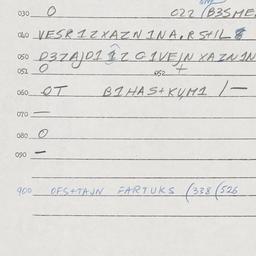 030 O 022 (B3SME
040 VESR 1ZXAZN 1NA, R S+IL
050 D3ZAJD1 1Z G1VEJN XAZN1N
051 O 052 +
060 OT B1HAS+KUM1 1—
070 —
080 O
090 —
900 OFS+TAJN FARTUKS (338 (526